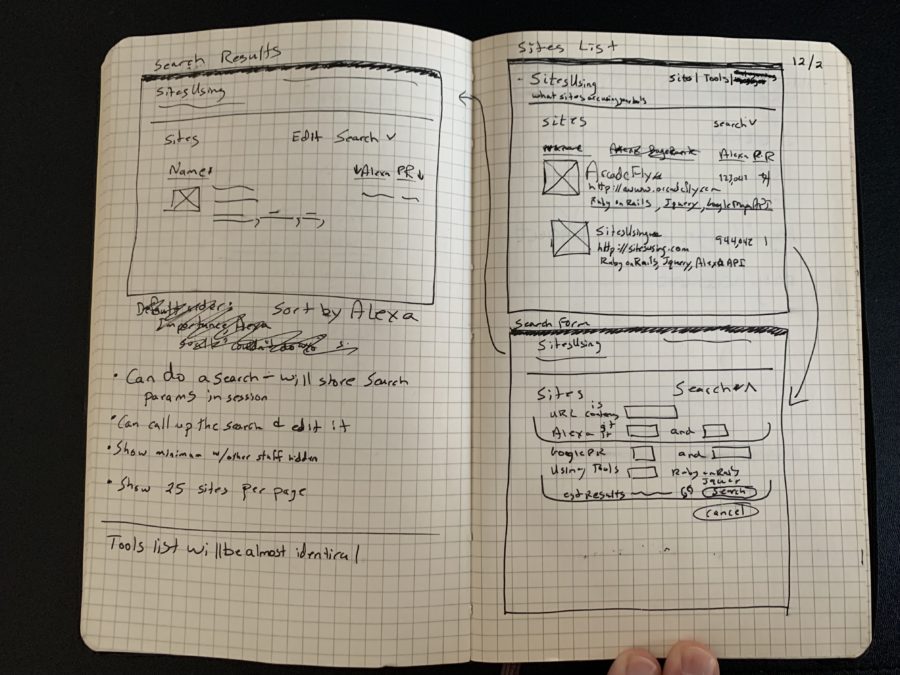 Search Results
SitesUsing
Sites Edit Search
Name Alexa PR
Default order:
Importance, Alexa
Sort by Alexa
• Can do a search - will store search
params in session
• Can call up the search & edit it
• Show minimum w/other stuff hidden
• Show 25 sites per page
Tools list will be almost identical
Sites List
12/2
SitesUsing Sites | Tools |
what sites are using your tools
Sites search
Alexa PR
ArcadeFly
http://www.arcadefly.com
Ruby on Rails, Jquery, Google Maps API
SitesUsing 944,042 1
http://sitesusing.com
Ruby on Rails, Jquery, Alexa API
Search Form
SitesUsing
Sites Search
URL is
contains
Alexa gt and
lt
Google PR and
Using Tools Ruby on Rails
Jquery
est Results Search
Cancel